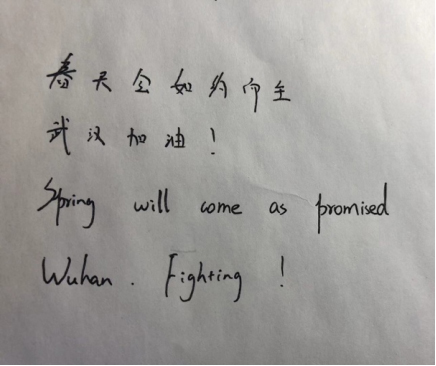 春天会如约而至
武汉加油!
Spring will come as promised
Wuhan. Fighting!